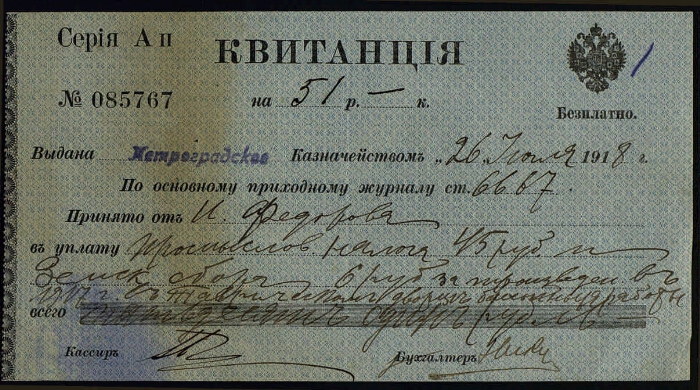 Серія А п
КВИТАНЦІЯ
1
№ 085767
на 51 р. — к.
Безплатно.
Выдана Петроградское Казначействомъ „26 Іюля 1918 г.
По основному приходному журналу ст. 6667.
Принято отъ И. Федорова
въ уплату промыслов. налога 45 руб и
Земск сбора 6 руб за произведен въ
1917 г. въ Таврическом дворце работы
всего
Кассиръ
Бухгалтеръ